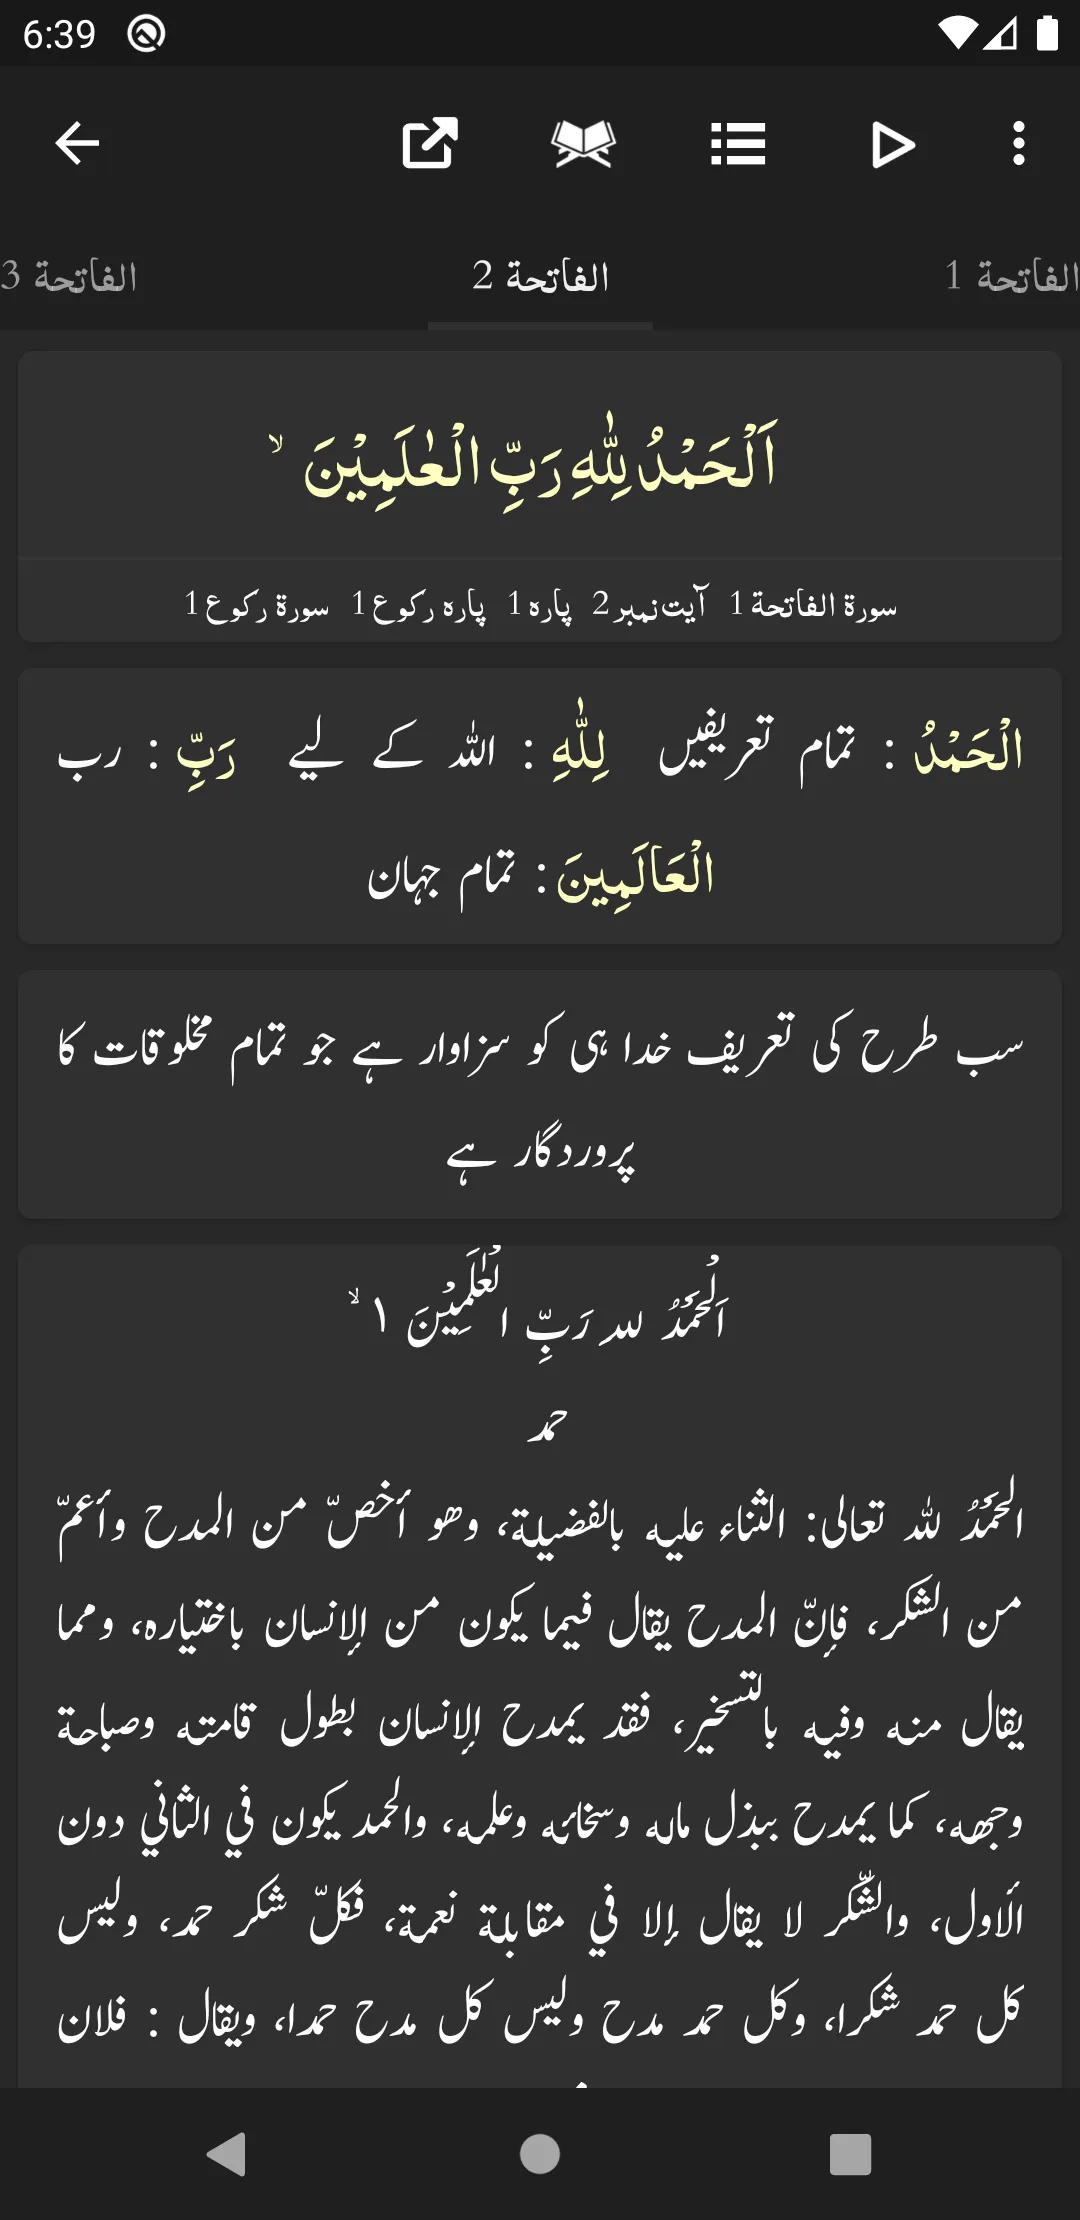 6:39
الفاتحة 1
الفاتحة 2
الفاتحة 3
اَلْحَمْدُ لِلّٰهِ رَبِّ الْعٰلَمِيْنَ ۙ
سورة الفاتحة 1 آیت نمبر 2 پارہ 1 پارہ رکوع 1 سورۃ رکوع 1
الْحَمْدُ : تمام تعریفیں لِلّٰهِ : اللہ کے لیے رَبِّ : رب
الْعَالَمِينَ : تمام جہان
سب طرح کی تعریف خدا ہی کو سزاوار ہے جو تمام مخلوقات کا
پروردگار ہے
اَلْحَمْدُ للہ رَبِّ الْعٰلَمِيْنَ ١ ۙ
حمد
الحَمْدُ لله تعالى: الثناء عليه بالفضيلة، وهو أخصّ من المدح وأعمّ
من الشكر، فإنّ المدح يقال فيما يكون من الإنسان باختياره، ومما
يقال منه وفيه بالتسخير، فقد يمدح الإنسان بطول قامته وصباحة
وجهه، كما يمدح ببذل ماله وسخائه وعلمه، والحمد يكون في الثاني دون
الأول، والشّكر لا يقال إلا في مقابلة نعمة، فكلّ شكر حمد، وليس
كل حمد شكرا، وكل حمد مدح وليس كل مدح حمدا، ويقال : فلان